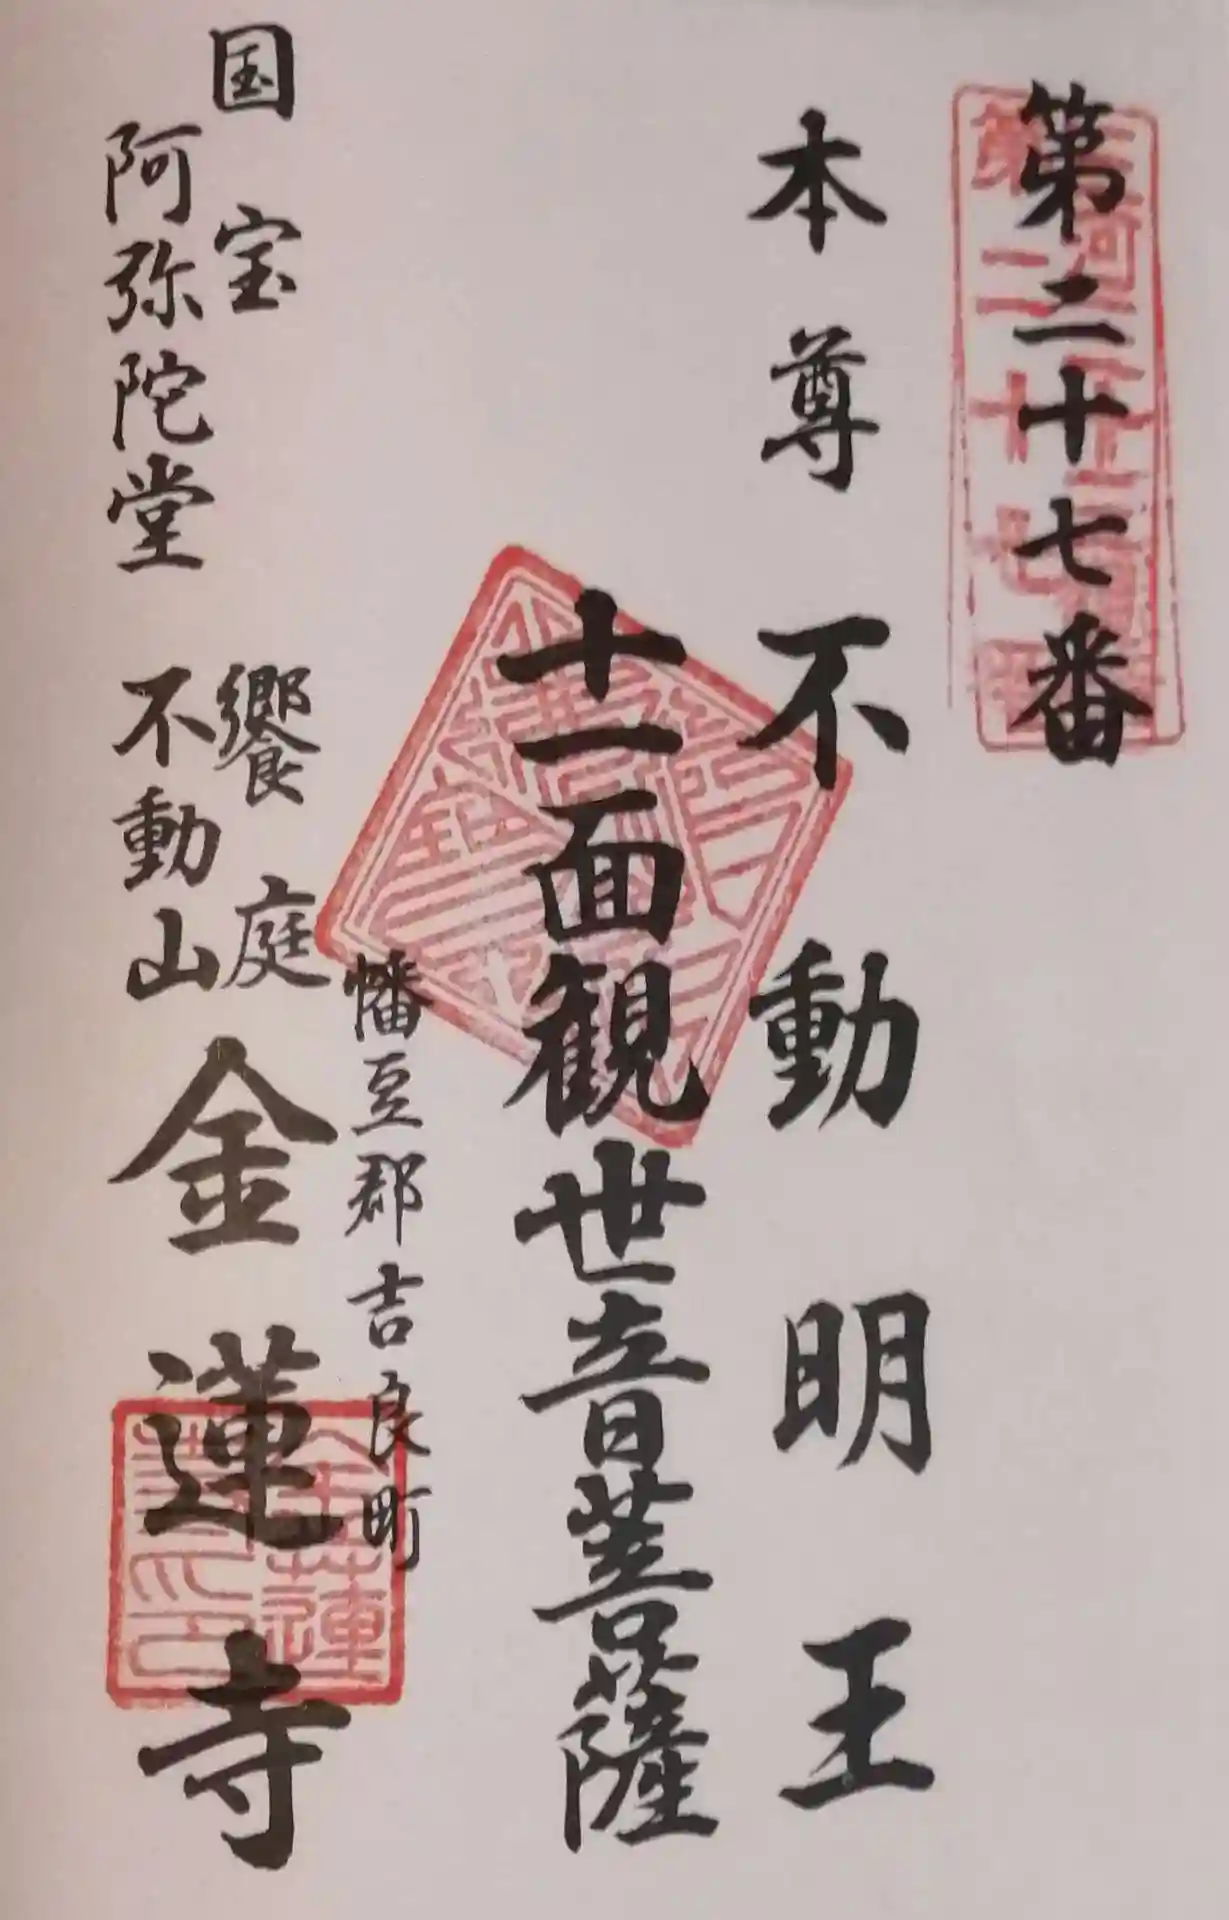 第二十七番
本尊 不動明王
十一面観世音菩薩
幡豆郡吉良町
国宝
阿弥陀堂
饗庭
不動山
金蓮寺